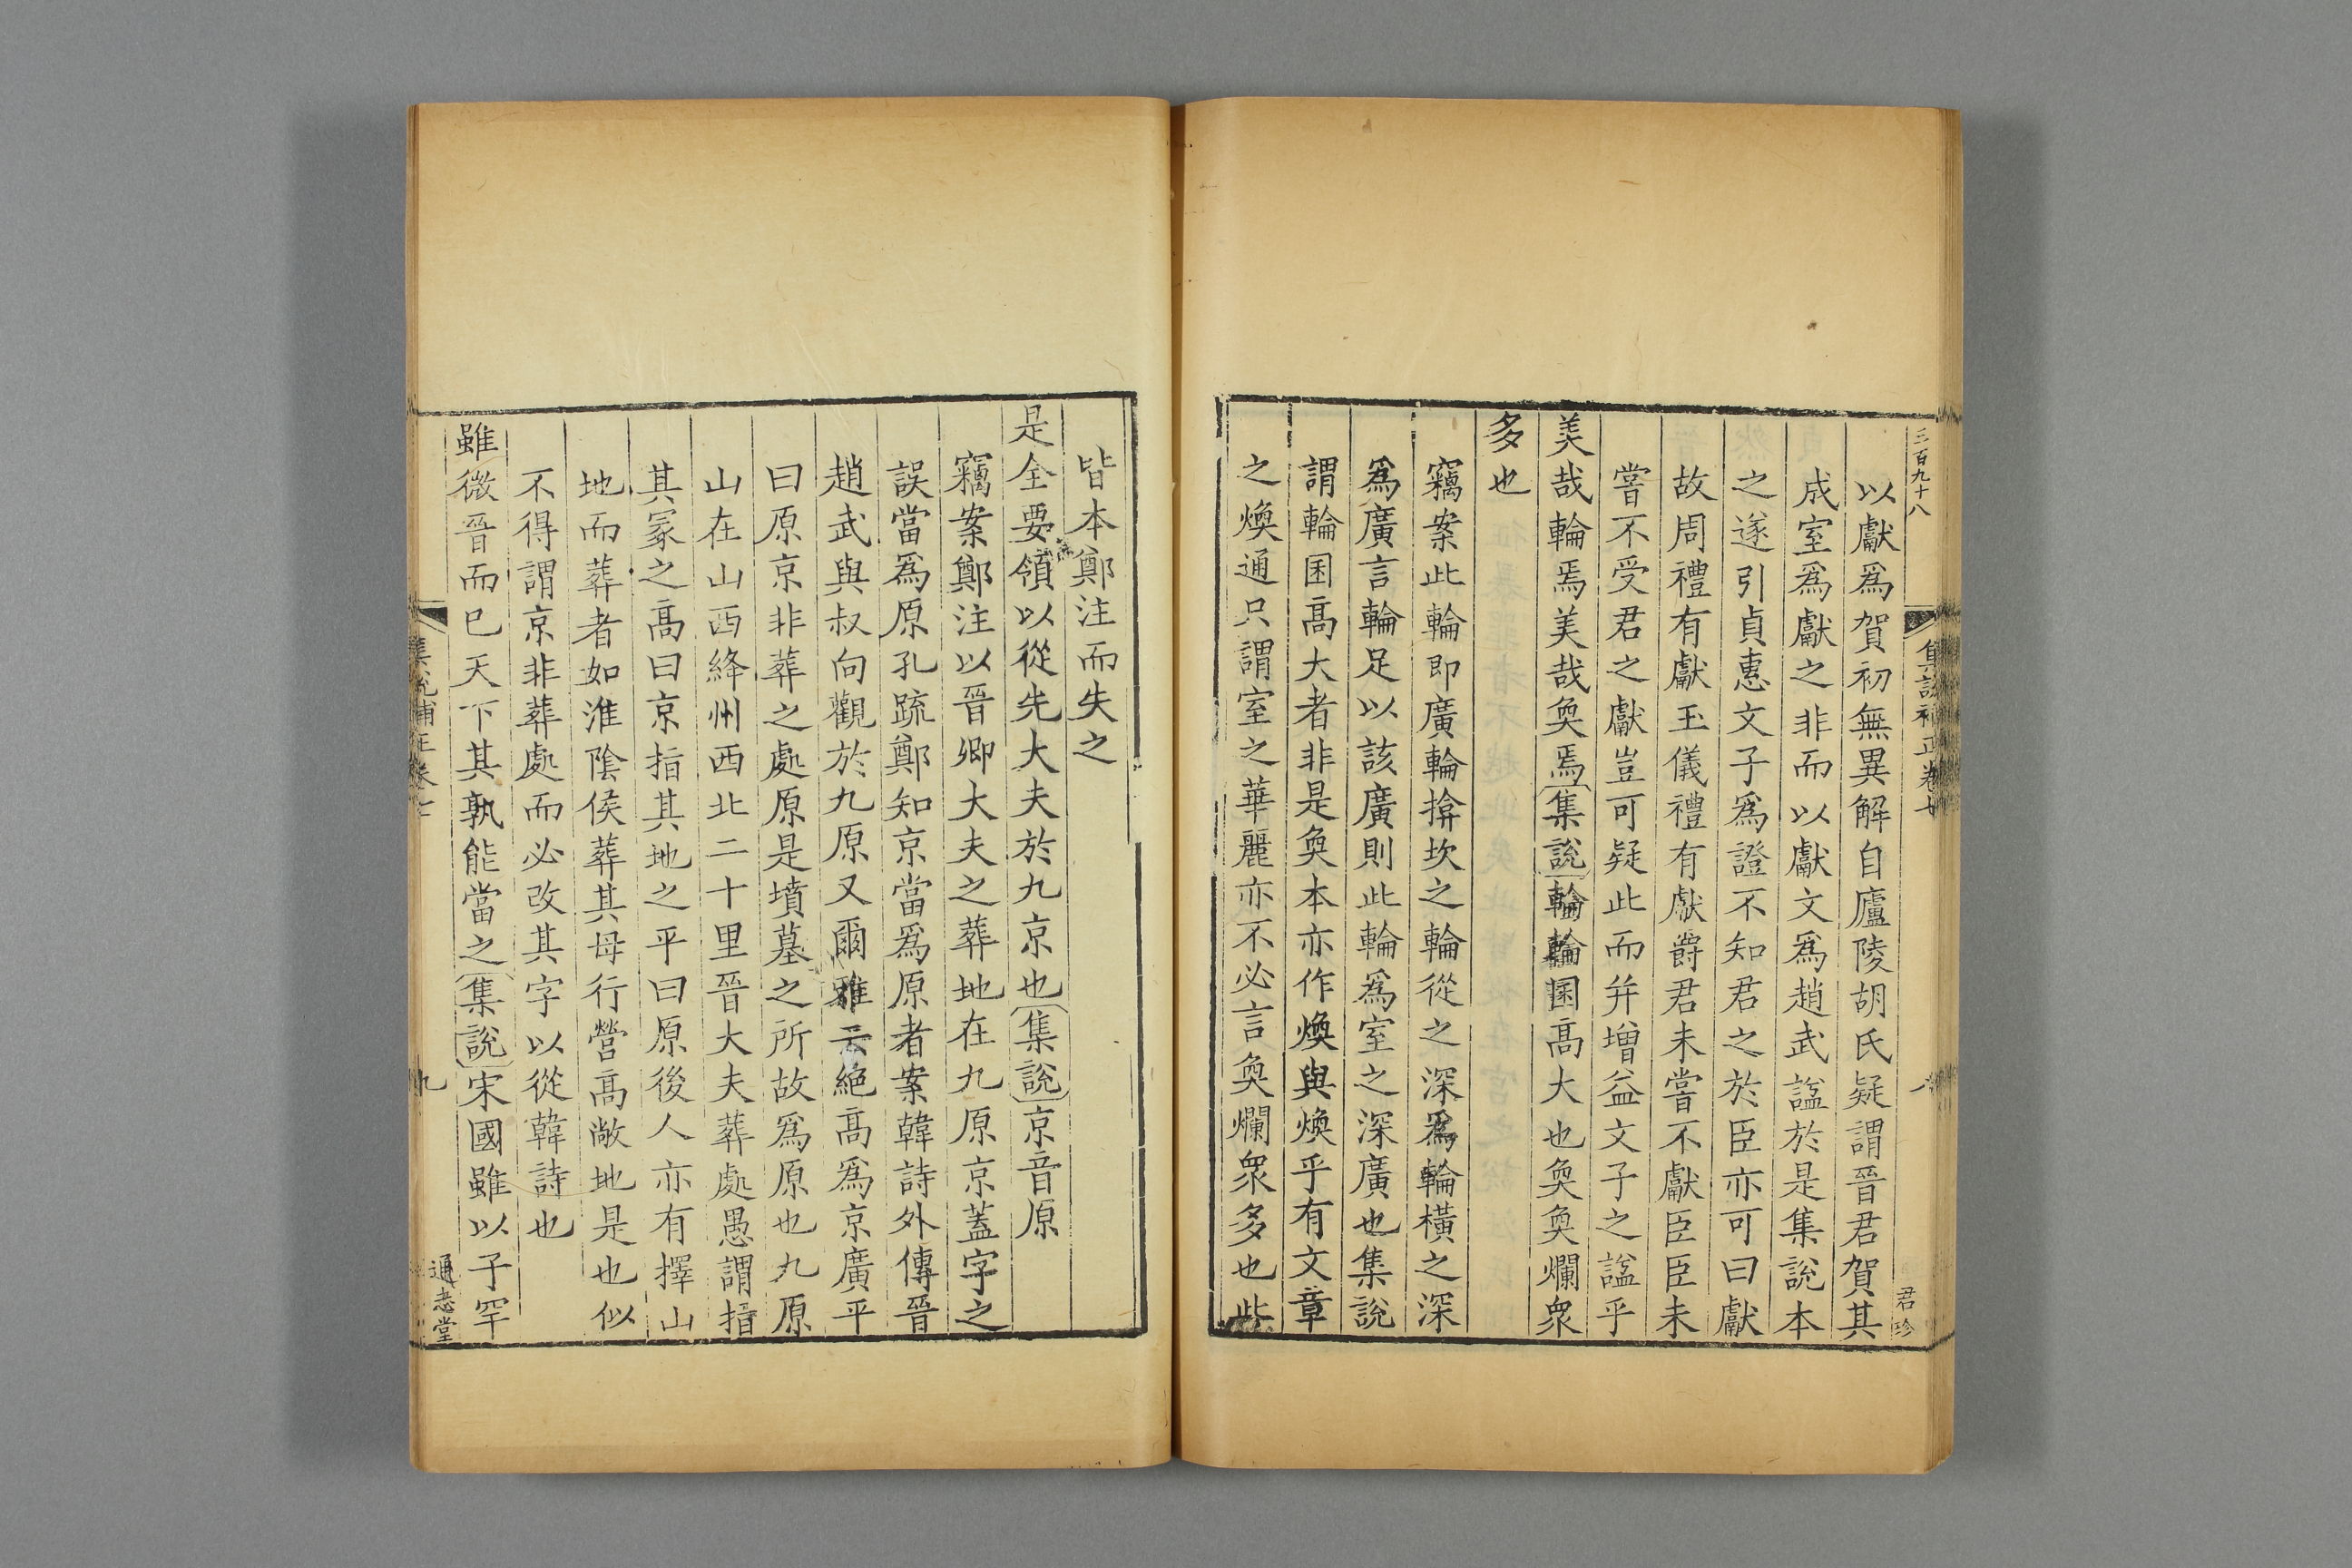 三百九十八
集說補正卷七
君珍
以獻爲賀初無異解自廬陵胡氏疑謂晉君賀其
成室爲獻之非而以獻文爲趙武諡於是集說本
之遂引貞惠文子爲證不知君之於臣亦可曰獻
故周禮有獻玉儀禮有獻爵君未嘗不獻臣臣未
嘗不受君之獻豈可疑此而弁增益文子之諡乎
美哉輪焉美哉奐焉集說輪輪囷高大也奐奐爛衆
多也
竊案此輪即廣輪揜坎之輪從之深爲輪橫之深
爲廣言輪足以該廣則此輪爲室之深廣也集說
謂輪囷高大者非是奐本亦作煥與煥乎有文章
之煥通只謂室之華麗亦不必言奐爛衆多也此
皆本鄭注而失之
是全要領以從先大夫於九京也集說京音原
竊案鄭注以晉卿大夫之葬地在九原京蓋字之
誤當爲原孔疏鄭知京當爲原者案韓詩外傳晉
趙武與叔向觀於九原又爾雅云絕高爲京廣平
曰原京非葬之處原是墳墓之所故爲原也九原
山在山西絳州西北二十里晉大夫葬處愚謂指
其冡之高曰京指其地之平曰原後人亦有擇山
地而葬者如淮陰侯葬其母行營高敞地是也似
不得謂京非葬處而必改其字以從韓詩也
雖微晉而巳天下其孰能當之集說宋國雖以子罕
集說補正卷七
九
通志堂